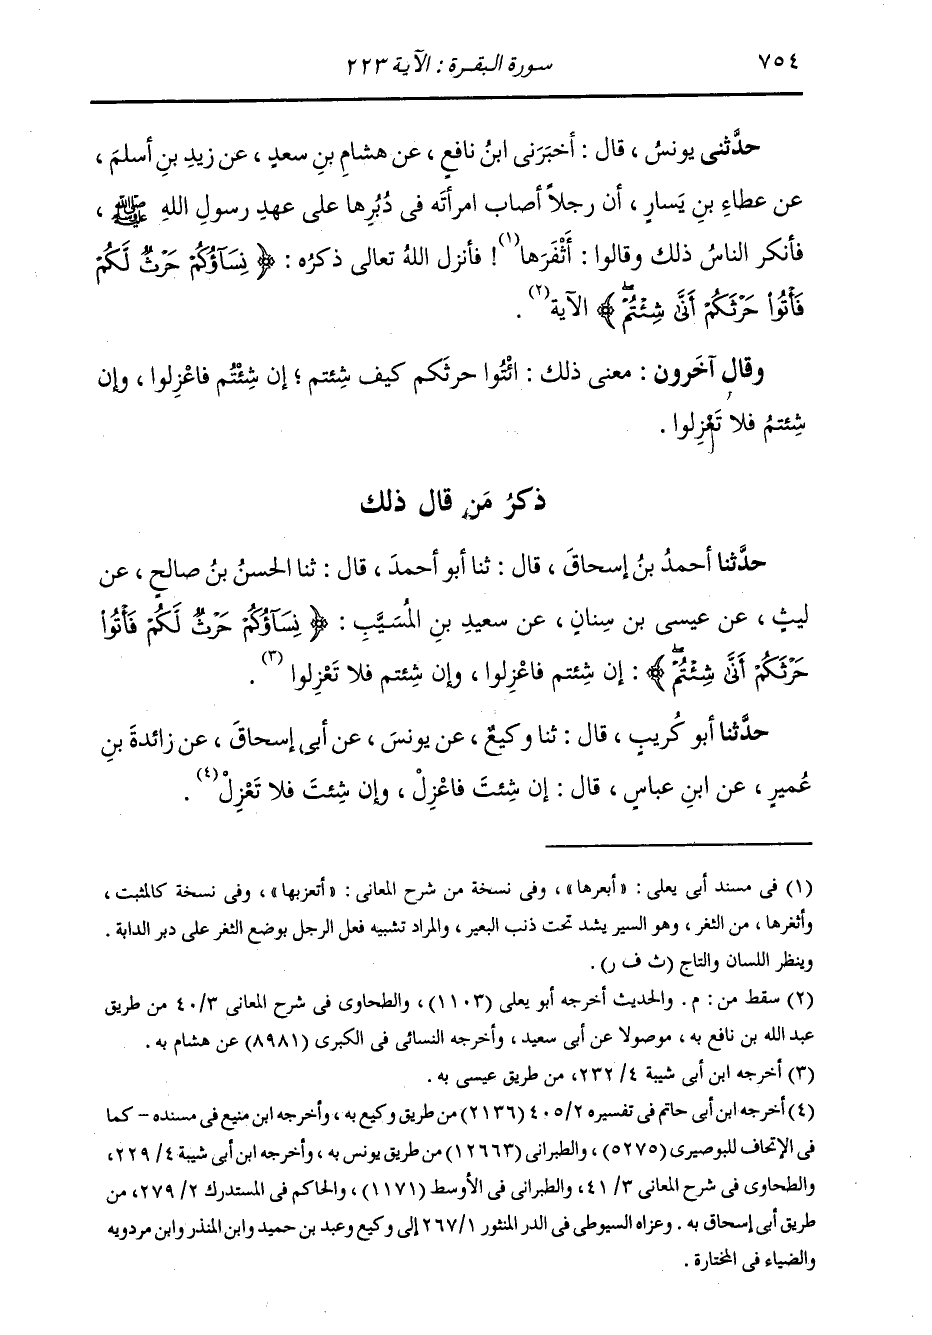 ٧٥٤ سورة البقرة : الآية ٢٢٣
حدَّثنى يونسُ ، قال : أخبَرَنى ابنُ نافعٍ ، عن هشامِ بنِ سعدٍ ، عن زيدِ بنِ أسلمَ ،
عن عطاءِ بنِ يَسارٍ ، أن رجلاً أصاب امرأتَه فى دُبُرِها على عهدِ رسولِ اللهِ ﷺ ،
فأنكر الناسُ ذلك وقالوا : أَثْفَرَها(١)! فأنزل اللهُ تعالى ذكرُه : ﴿ نِسَآؤُكُمْ حَرْثٌ لَّكُمْ
فَأْتُوا۟ حَرْثَكُمْ أَنَّىٰ شِئْتُمْۖ ﴾ الآية(٢) .
وقال آخَرون : معنى ذلك : ائْتُوا حرثَكم كيف شِئتم ؛ إن شِئْتُم فاعْزِلوا ، وإن
شِئتمُ فلا تَعْزِلوا .
ذكرُ مَن قال ذلك
حدَّثنا أحمدُ بنُ إسحاقَ ، قال : ثنا أبو أحمدَ ، قال : ثنا الحسنُ بنُ صالحٍ ، عن
ليثٍ ، عن عيسى بن سِنانٍ ، عن سعيدِ بنِ المُسَيَّبِ : ﴿ نِسَآؤُكُمْ حَرْثٌ لَّكُمْ فَأْتُوا۟
حَرْثَكُمْ أَنَّىٰ شِئْتُمْۖ ﴾ : إن شِئتم فاعْزِلوا ، وإن شِئتم فلا تَعْزِلوا(٣) .
حدَّثنا أبو كُريبٍ ، قال : ثنا وكيعٌ ، عن يونسَ ، عن أبى إسحاقَ ، عن زائدةَ بنِ
عُميرٍ ، عن ابنِ عباسٍ ، قال : إن شِئتَ فاعْزِلْ ، وإن شِئتَ فلا تَعْزِلْ(٤) .
(١) فى مسند أبى يعلى : «أبعرها» ، وفى نسخة من شرح المعانى : «أتعزبها» ، وفى نسخة كالمثبت ،
وأثغرها ، من الثغر ، وهو السير يشد تحت ذنب البعير ، والمراد تشبيه فعل الرجل بوضع الثغر على دبر الدابة .
وينظر اللسان والتاج (ث ف ر) .
(٢) سقط من : م . والحديث أخرجه أبو يعلى (١١٠٣) ، والطحاوى فى شرح المعانى ٤٠/٣ من طريق
عبد الله بن نافع به ، موصولا عن أبى سعيد ، وأخرجه النسائى فى الكبرى (٨٩٨١) عن هشام به .
(٣) أخرجه ابن أبى شيبة ٤/ ٢٣٢، من طريق عيسى به .
(٤) أخرجه ابن أبى حاتم فى تفسيره ٤٠٥/٢ (٢١٣٦) من طريق وكيع به ، وأخرجه ابن منيع فى مسنده – كما
فى الإتحاف للبوصيرى (٥٢٧٥) ، والطبرانى (١٢٦٦٣) من طريق يونس به ، وأخرجه ابن أبى شيبة ٤/ ٢٢٩،
والطحاوى فى شرح المعانى ٣/ ٤١، والطبرانى فى الأوسط (١١٧١) ، والحاكم فى المستدرك ٢/ ٢٧٩، من
طريق أبى إسحاق به . وعزاه السيوطى فى الدر المنثور ٢٦٧/١ إلى وكيع وعبد بن حميد وابن المنذر وابن مردويه
والضياء فى المختارة .